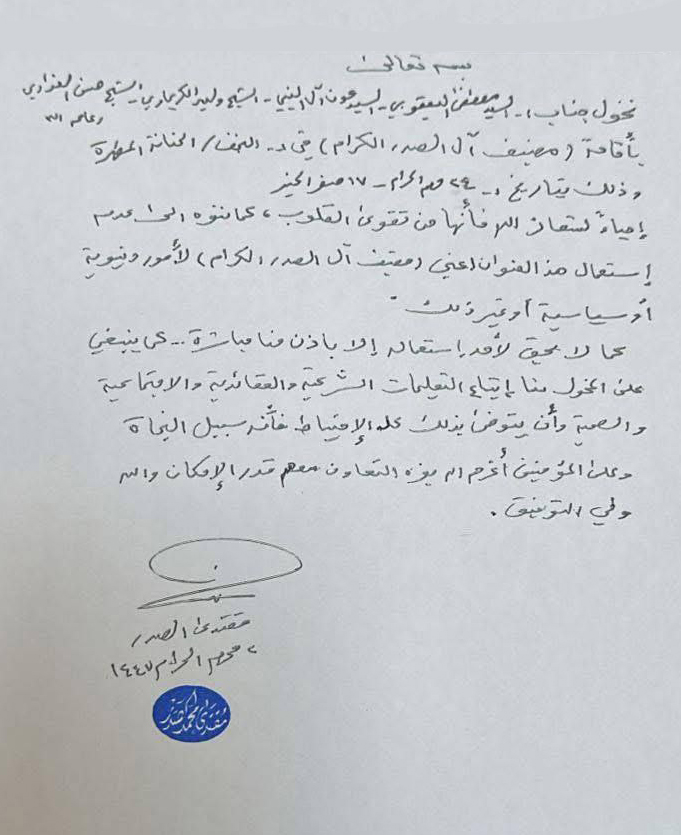 بسمه تعالى
نخول جناب:ـ السيد مصطفى اليعقوبي ـ السيد عون آل النبي ـ الشيخ وليد الكريماوي ـ الشيخ حسن العذاري
دعاهم الله
بأقامة (مضيف آل الصدر الكرام) في :ـ النجف/ الحنانة المطهرة
وذلك بتاريخ :ـ ٢٤ محرم الحرام ـ ١٧ صفر الخير
إحياءً لشعائر الله فأنها من تقوى القلوب، كما ننوه الى عدم
إستعمال هذا العنوان اعني (مضيف آل الصدر الكرام) لأمور دنيوية
أو سياسية أو غير ذلك.
كما لا يحق لأحد إستعماله إلا بإذن منا مباشرة... كما ينبغي
على المخول منا إتباع التعليمات الشرعية والعقائدية والاجتماعية
والصحية وأن يتوخى بذلك كله الإحتياط فأنه سبيل النجاة
وعلى المؤمنين أعزهم الله بعزه التعاون معهم قدر الإمكان والله
ولي التوفيق.
مقتدى الصدر
٢ محرم الحرام ١٤٤٧
مقتدى محمد الصدر